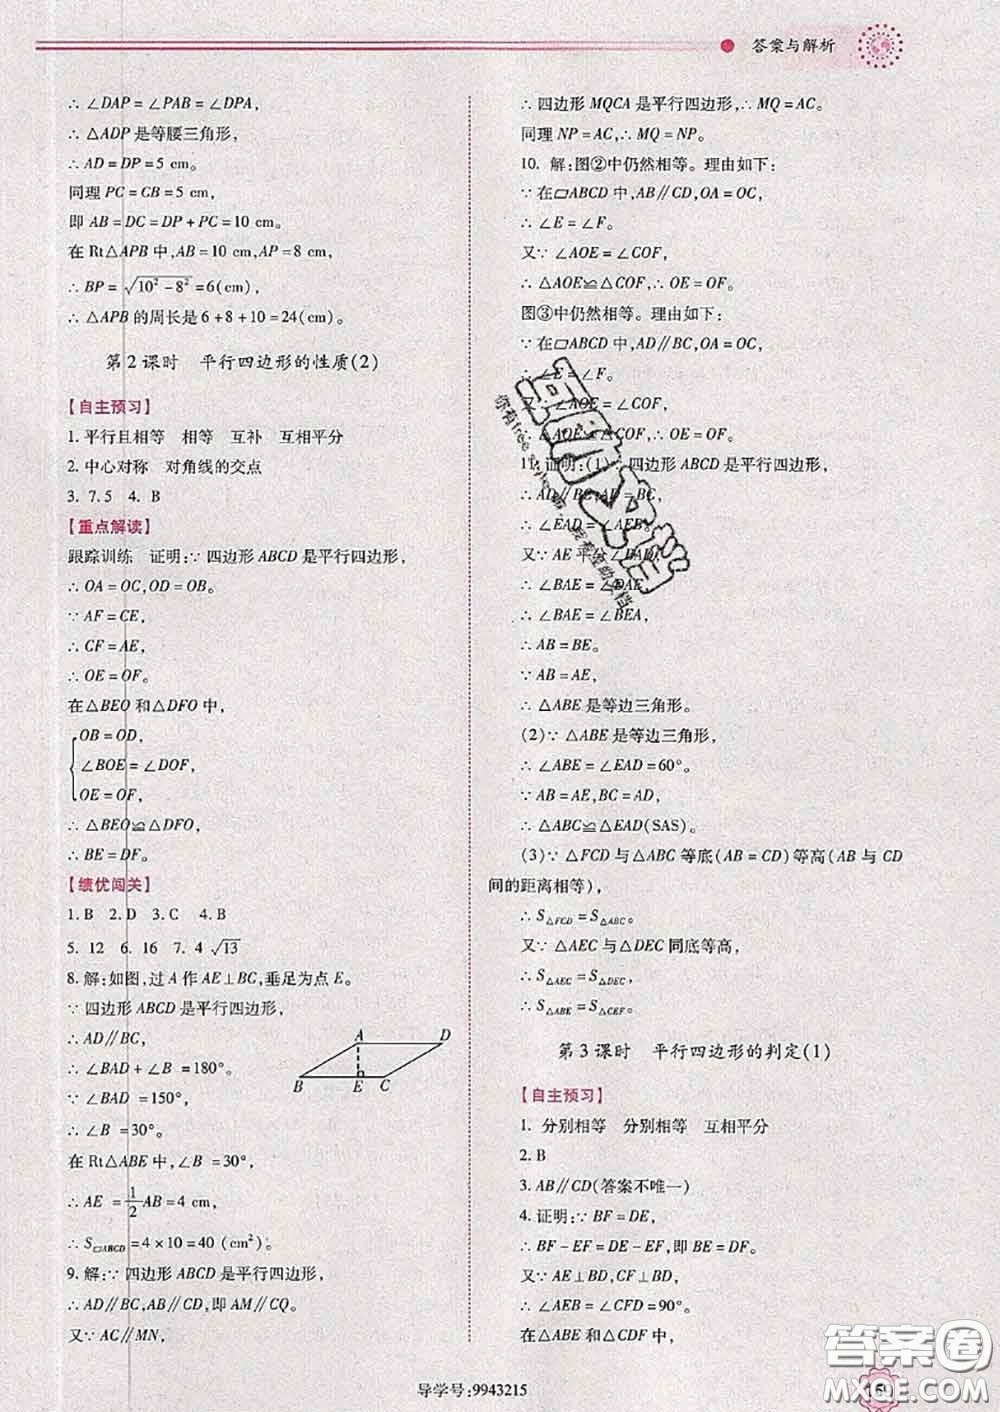 答案与解析
∴ ∠DAP = ∠PAB = ∠DPA,
∴ △ADP 是等腰三角形,
∴ AD = DP = 5 cm。
同理 PC = CB = 5 cm,
即 AB = DC = DP + PC = 10 cm。
在 Rt△APB 中, AB = 10 cm, AP = 8 cm,
∴ BP = √(10² - 8²) = 6(cm),
∴ △APB 的周长是 6 + 8 + 10 = 24(cm)。
第 2 课时 平行四边形的性质(2)
【自主预习】
1. 平行且相等 相等 互补 互相平分
2. 中心对称 对角线的交点
3. 7.5 4. B
【重点解读】
跟踪训练 证明:∵ 四边形 ABCD 是平行四边形,
∴ OA = OC, OD = OB。
∵ AF = CE,
∴ CF = AE,
∴ OE = OF。
在△BEO 和△DFO 中,
OB = OD,
∠BOE = ∠DOF,
OE = OF,
∴ △BEO≌△DFO,
∴ BE = DF。
【绩优闯关】
1. B 2. D 3. C 4. B
5. 12 6. 16 7. 4√13
8. 解:如图,过 A 作 AE⊥BC,垂足为点 E。
∵ 四边形 ABCD 是平行四边形,
∴ AD∥BC,
∴ ∠BAD + ∠B = 180°。
∵ ∠BAD = 150°,
∴ ∠B = 30°。
A D
B E C
在 Rt△ABE 中, ∠B = 30°,
∴ AE = 1/2 AB = 4 cm,
∴ S▱ABCD = 4 × 10 = 40 (cm²)。
9. 解:∵ 四边形 ABCD 是平行四边形,
∴ AD∥BC, AB∥CD, 即 AM∥CQ。
又∵ AC∥MN,
∴ 四边形 MQCA 是平行四边形,∴ MQ = AC。
同理 NP = AC,∴ MQ = NP。
10. 解:图②中仍然相等。理由如下:
∵ 在▱ABCD 中, AB∥CD, OA = OC,
∴ ∠E = ∠F。
又∵ ∠AOE = ∠COF,
∴ △AOE≌△COF,∴ OE = OF。
图③中仍然相等。理由如下:
∵ 在▱ABCD 中, AD∥BC, OA = OC,
∴ ∠E = ∠F。
∠AOE = ∠COF,
∴ △AOE≌△COF,∴ OE = OF。
11. 证明:(1)∵ 四边形 ABCD 是平行四边形,
∴ AD∥BC, AD = BC,
∴ ∠EAD = ∠AEB。
又∵ AE 平分∠BAD,
∴ ∠BAE = ∠DAE,
∴ ∠BAE = ∠BEA,
∴ AB = BE。
∵ AB = AE,
∴ △ABE 是等边三角形。
(2)∵ △ABE 是等边三角形,
∴ ∠ABE = ∠EAD = 60°。
∵ AB = AE, BC = AD,
∴ △ABC≌△EAD(SAS)。
(3)∵ △FCD 与△ABC 等底(AB = CD)等高(AB 与 CD
间的距离相等),
∴ S△FCD = S△ABC。
又∵ △AEC 与△DEC 同底等高,
∴ S△AEC = S△DEC,
∴ S△ABE = S△CEF。
第 3 课时 平行四边形的判定(1)
【自主预习】
1. 分别相等 分别相等 互相平分
2. B
3. AB∥CD(答案不唯一)
4. 证明:∵ BF = DE,
∴ BF - EF = DE - EF, 即 BE = DF。
又∵ AE⊥BD, CF⊥BD,
∴ ∠AEB = ∠CFD = 90°。
在△ABE 和△CDF 中,
导学号:9943215
答案圈
MXQE.COM